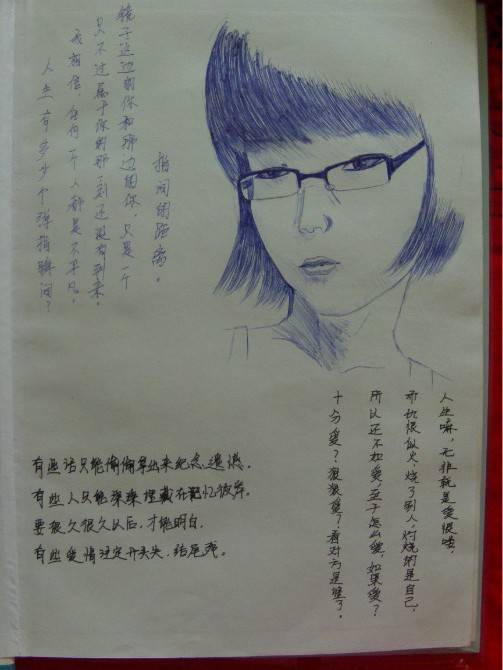 人生有多少个弹指瞬间？
我相信，任何一个人都是不平凡，
只不过属于你的那一刻还没有到来，
镜子这边的你和那边的你，只是一个
指间的距离。
人生嘛，无非就是爱恨喽，
而仇恨似火，烧了别人，灼烧的是自己，
所以还不如爱，至于怎么爱，如果爱？
十分爱？狠狠爱？看对方是谁了。
有些话只能偷偷拿出来纪念、遗忘.
有些人只能深深埋藏在记忆彼岸。
要很久很久以后，才能明白.
有些爱情注定开头美、结尾残。